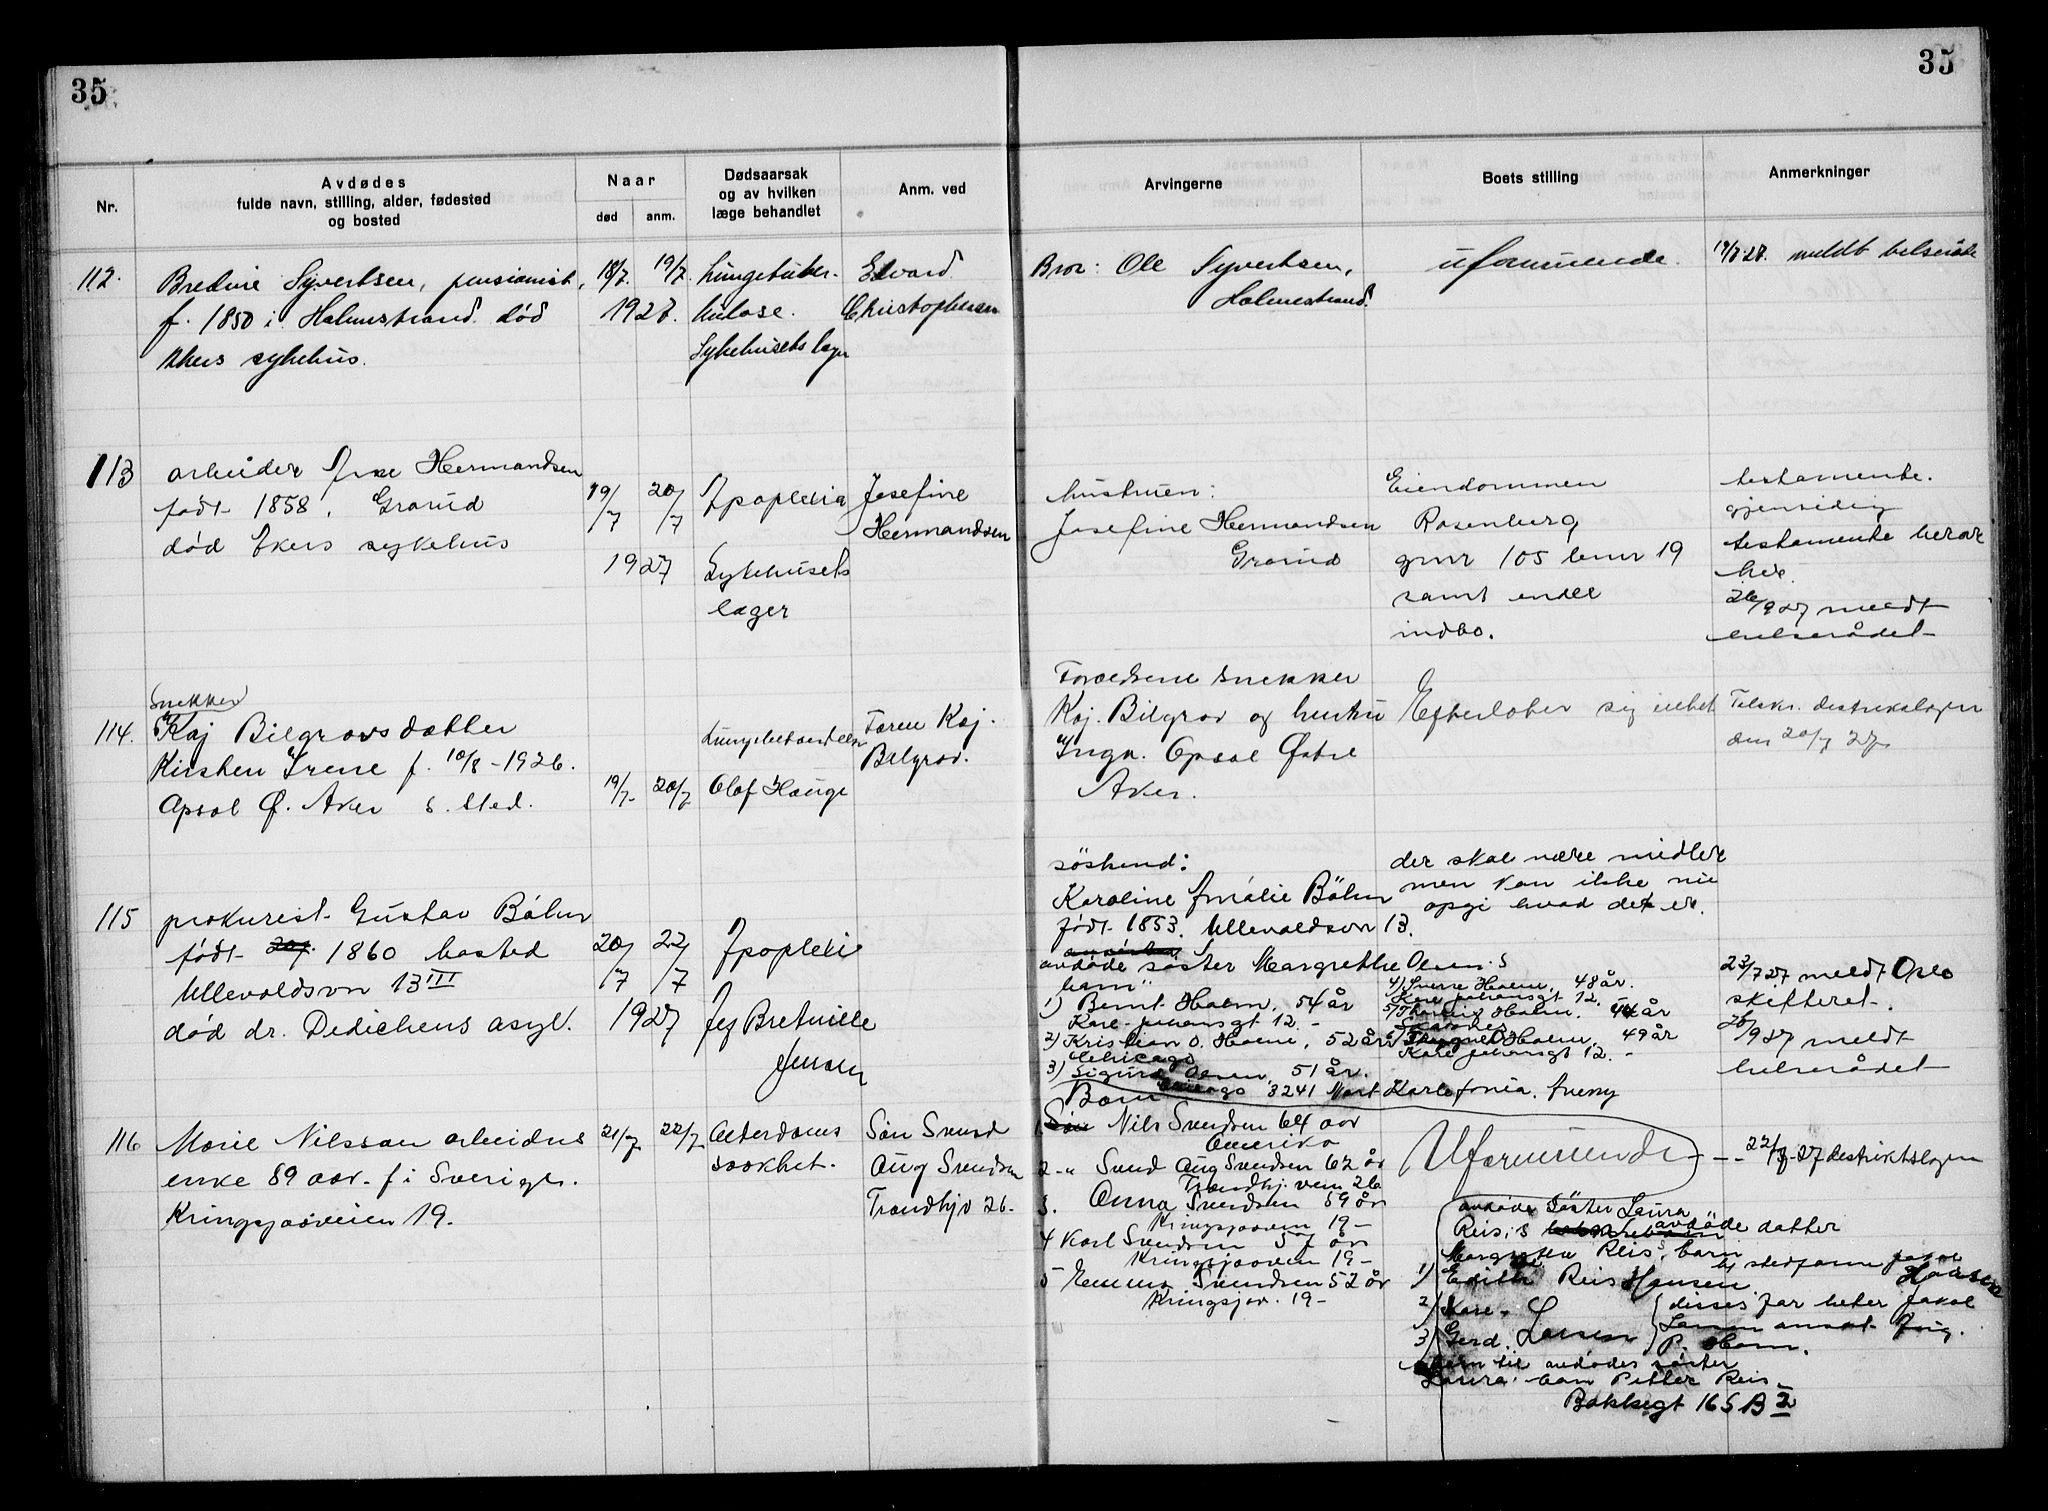 35
35
Nr.
Avdødes
fulde navn, stilling, alder, fødested
og bosted
Naar
død
anm.
Dødsaarsak
og av hvilken
læge behandlet
Anm. ved
Arvingerne
Boets stilling
Anmerkninger
112.
Bredine Syvertsen, pensionist,
f. 1850 i Holmestrand død
Akers sykehus.
18/7. 19/7.
1927.
Lungetuber-
kulose.
Sykehusets læger
Edvard
Christophersen
Bror: Ole Syvertsen,
Holmestrand.
uformuende.
meldt
113
arbeider Hermandsen
født 1858, Grorud
død Akers sykehus
19/7 20/7
1927
Apoplexia
Sykehusets
læger
Josefine
Hermandsen
hustruen:
Josefine Hermandsen
Grorud
Eiendommen
Rosenberg
gnr 105 bnr 19
samt endel
indbo.
testamente.
gjensidig
testamente beror
her.
26/9 27 meldt
helserådet
114.
Snekker
Kaj Bilgrovs datter
Kirsten Irene f. 10/8-1926.
Opsal Ø. Aker s. sted.
19/7- 20/7
Lungebetændelse
Olaf Hauge
Faren Kaj.
Bilgrov.
Forældrene snekker
Kaj. Bilgrov og hustru
Inga. Opsal Østre
Aker.
Efterlater sig intet
Tilskr. distrikslagen
den 20/7 27
115
prokurist Gustav Böhn
født 1860 bosted
Ullevoldsvn 13 III
død dr. Dedichens asyl.
20/7 22/7
1927
Apoplexi
Bretville
Jensen
søskend:
Karoline Amalie Böhn
født 1853. Ullevoldsvn 13.
avdøde søster Margrethe Olsen's
barn"
1) Bernt Holm, 54 år
Karl-johansgt 12.-
2) Kristian O. Holm, 52 år
Chicago
3) Sigurd Olsen, 51 år.
Chicago 3241 Nort Karlefornia. Aveny
4) Sverre Holm, 48 år.
Karl johansgt 12.
5) Holm, 44 år
6) Holm, 49 år
Karl johansgt 12.-
der skal være midler
men kan ikke nu
opgi hvad det er.
23/7 27 meldt Oslo
skifteret.
26/9 27 meldt
helserådet
116
Marie Nilssen arbeiders
enke 89 aar. f i Sverige.
Kringsjaaveien 19.
21/7 22/7
Alderdoms
svakhet.
Søn Svend
Aug Svendsen
Trondhjv 26.
Barn
1. Søn Nils Svendsen 64 aar
Amerika
2-" Svend Aug Svendsen 62 år
Trondhj. vein 26
3. Anna Svendsen 59 år
Kringsjaavein 19-
4 Karl Svendsen 57 år
Kringsjaavein 19-
5 Emma Svendsen 52 år
Kringsjav. 19-
Uformuende
- - 22/7-27 destriktslagen
avdøde söster Laura
Reis's avdöde datter
Margreten Reis's barn
1) Edith Reis Hansen
hj stedfaren Jakob
Hansen
2) Kåre
3) Gerd. Larsen
disses far heter Jakob
Larsen ansat
P. Holm.
barn til avdødes söster
Laura. Petter Reis.
Bakkegt 16 S B 2